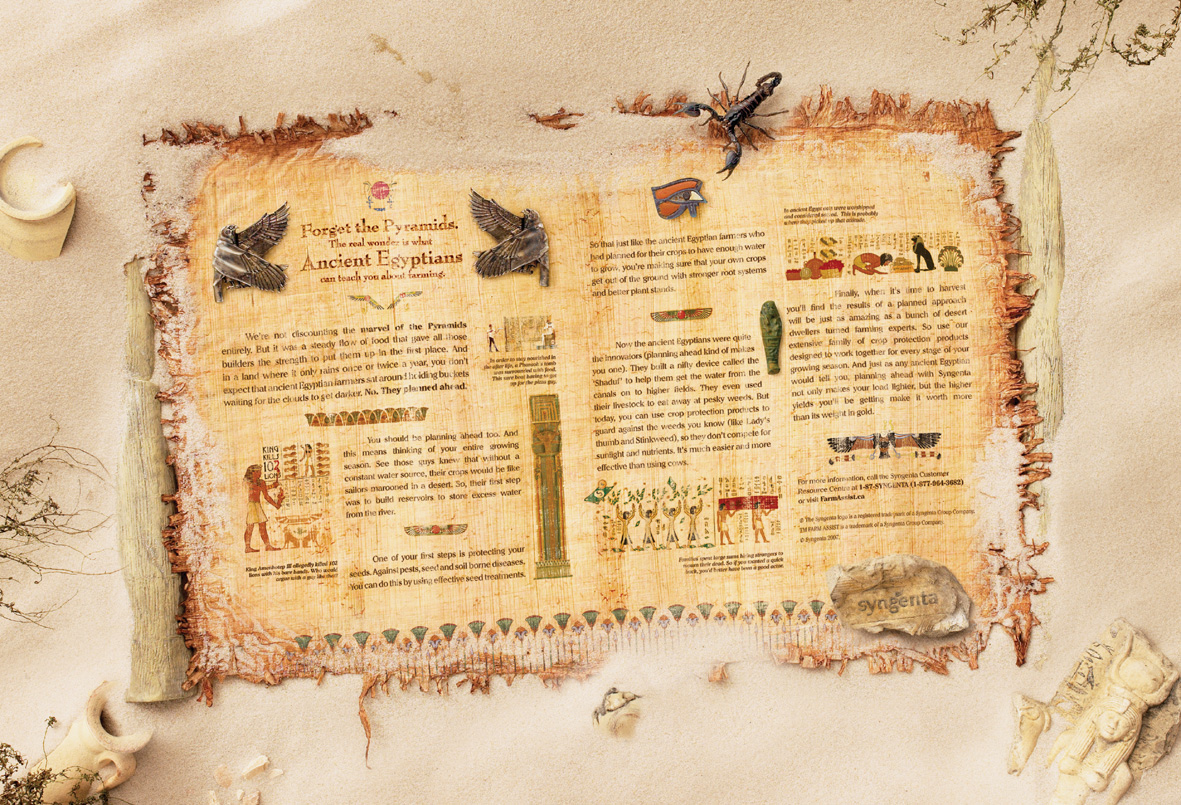 Forget the Pyramids.
The real wonder is what
Ancient Egyptians
can teach you about farming.
We're not discounting the marvel of the Pyramids
entirely. But it was a steady flow of food that gave all those
builders the strength to put them up in the first place. And
in a land where it only rains once or twice a year, you don't
expect that ancient Egyptian farmers sat around holding buckets
waiting for the clouds to get darker. No. They planned ahead.
In order to stay nourished in
the after life, a Pharaoh's tomb
was surrounded with food.
This sure beat having to go
up for the pizza guy.
KING
KILLS
102
LIONS
King Amenhotep III allegedly killed 102
lions with his bare hands. Who would
argue with a guy like that?
You should be planning ahead too. And
this means thinking of your entire growing
season. See those guys knew that without a
constant water source, their crops would be like
sailors marooned in a desert. So, their first step
was to build reservoirs to store excess water
from the river.
One of your first steps is protecting your
seeds. Against pests, seed and soil borne diseases.
You can do this by using effective seed treatments.
So that just like the ancient Egyptian farmers who
had planned for their crops to have enough water
to grow, you're making sure that your own crops
get out of the ground with stronger root systems
and better plant stands.
Now the ancient Egyptians were quite
the innovators (planning ahead kind of makes
you one). They built a nifty device called the
"Shaduf" to help them get the water from the
canals on to higher fields. They even used
their livestock to eat away at pesky weeds. But
today, you can use crop protection products to
guard against the weeds you know (like Lady's
thumb and Stinkweed), so they don't compete for
sunlight and nutrients. It's much easier and more
effective than using cows.
Families spent large sums hiring strangers to
mourn their dead. So if you wanted a quick
buck, you'd better have been a good actor.
In ancient Egypt cats were worshipped
and considered sacred. This is probably
where they picked up that attitude.
Finally, when it's time to harvest
you'll find the results of a planned approach
will be just as amazing as a bunch of desert
dwellers turned farming experts. So use our
extensive family of crop protection products
designed to work together for every stage of your
growing season. And just as any ancient Egyptian
would tell you, planning ahead with Syngenta
not only makes your load lighter, but the higher
yields you'll be getting make it worth more
than its weight in gold.
For more information, call the Syngenta Customer
Resource Center at 1-87-SYNGENTA (1-877-964-3682)
or visit FarmAssist.ca
® The Syngenta logo is a registered trademark of a Syngenta Group Company.
TM FARM ASSIST is a trademark of a Syngenta Group Company.
© Syngenta 2007.
syngenta